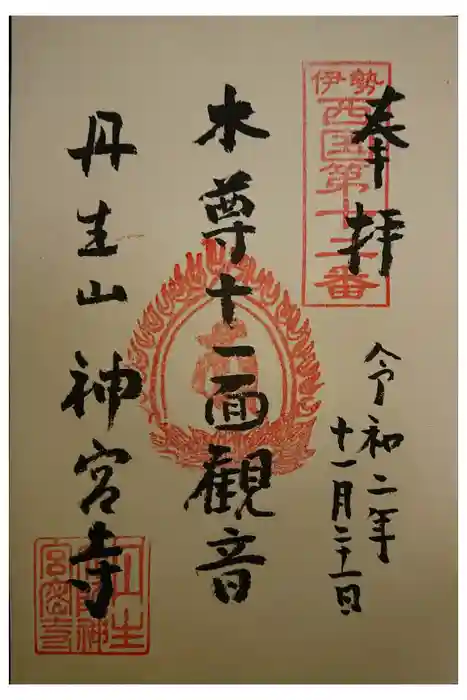 伊勢
西国第十二番
奉拝
令和二年
十一月二十一日
本尊十一面観音
丹生山神宮寺